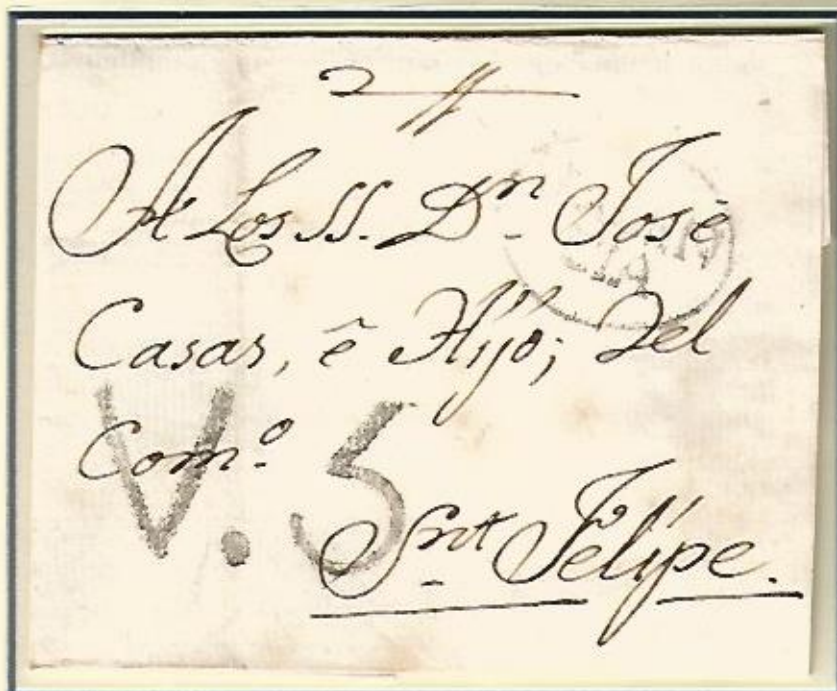 A Los SS. Dn. José
Casas, ê Hijo; del
Como.
V. 5
Snt Felipe.